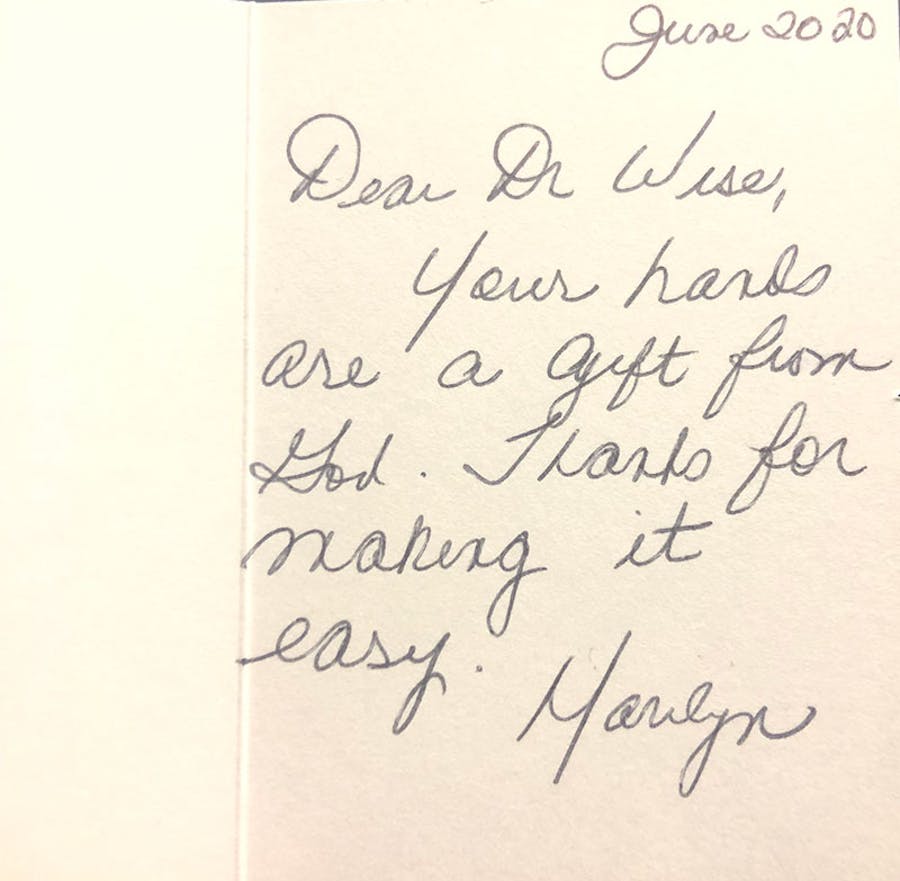 June 2020
Dear Dr Wise,
Your hands
are a gift from
God. Thanks for
making it
easy.
Marilyn